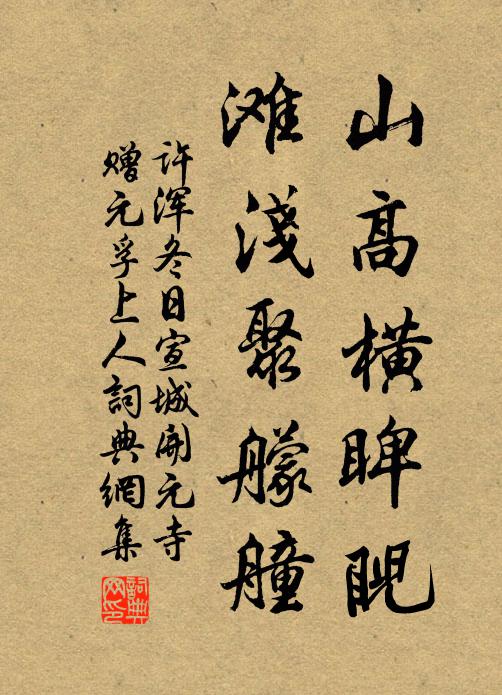 山高橫睥睨
滩淺聚艨艟
许浑冬日宣城開元寺
赠元孚上人詞典網集
詞典网印